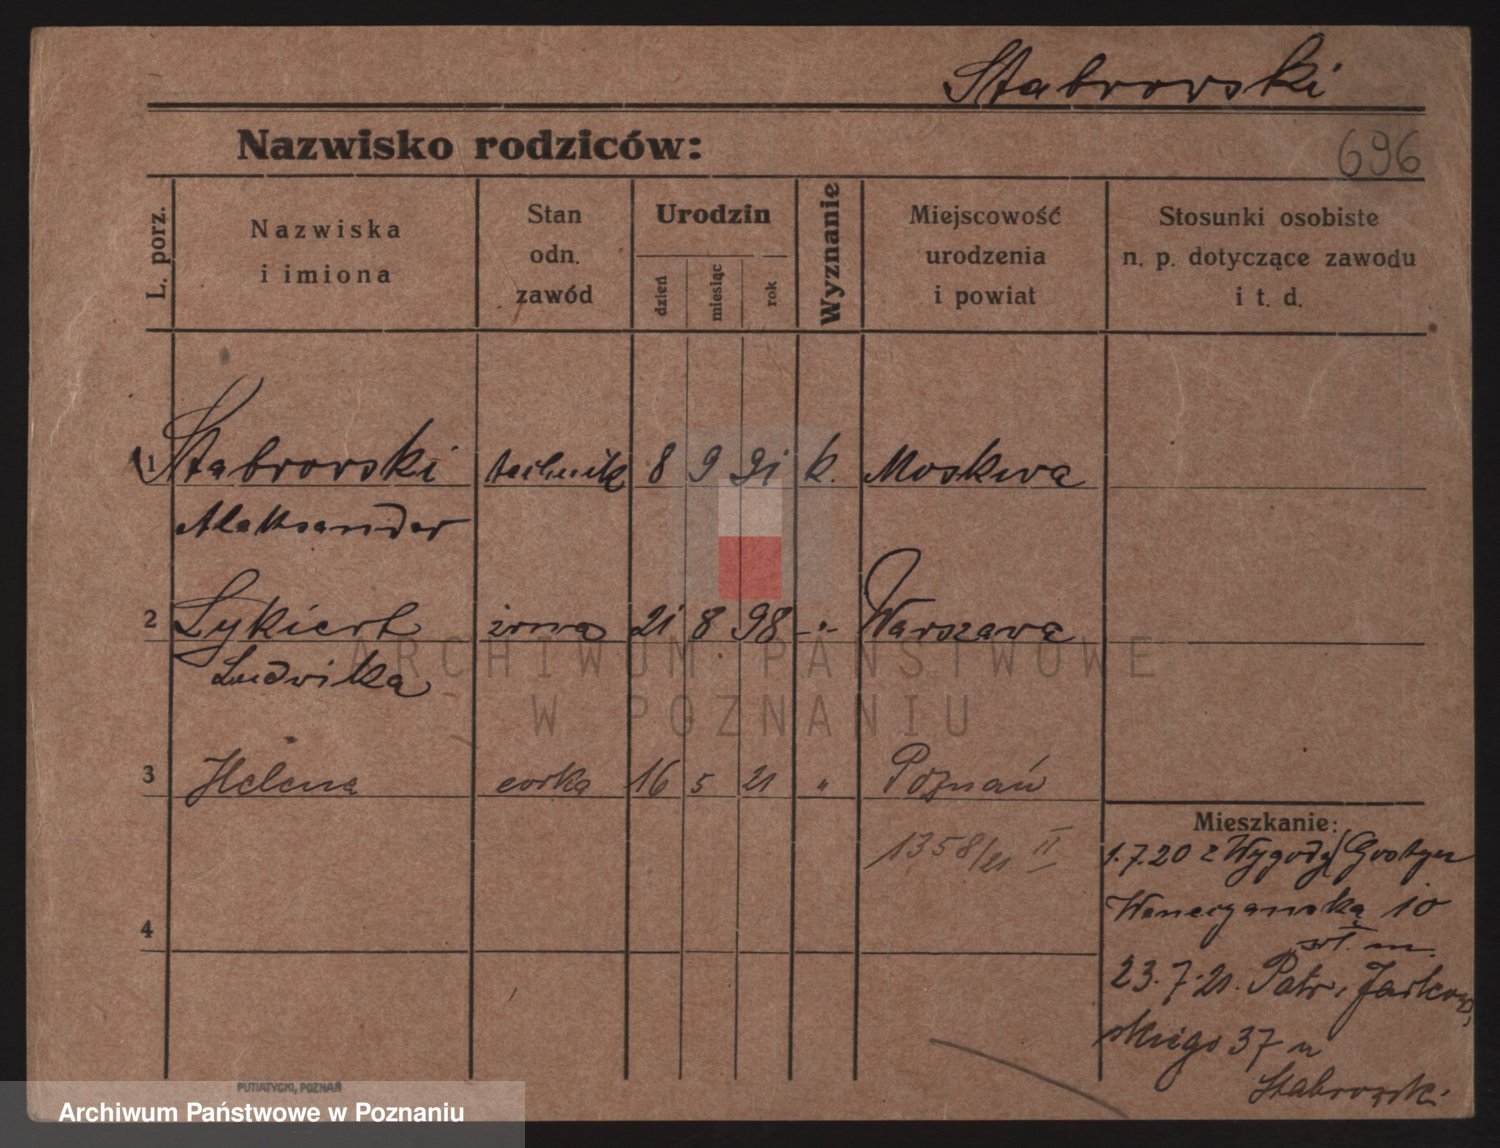 Stabrovski
Nazwisko rodziców:
696
L. porz.
Nazwiska
i imiona
Stan
odn.
zawód
Urodzin
dzień
miesiąc
rok
Wyznanie
Miejscowość
urodzenia
i powiat
Stosunki osobiste
n. p. dotyczące zawodu
i t. d.
1 Stabrovski technik 8 9 91 k. Moskwa
Aleksander
2 Lykiert żona 21 8 98 -"- Warszawa
Ludvika
3 Helena corka 16 5 21 " Poznań
1358/21 II
4
Mieszkanie:
1.7.20 z Wygody/Gostyn
Wenecyanska 10
wł. m.
23.7.21. Patr. Jackow
skiego 37 u
Stabrowski
PUTIATYCKI, POZNAŃ
ARCHIWUM PAŃSTWOWE
W POZNANIU
Archiwum Państwowe w Poznaniu